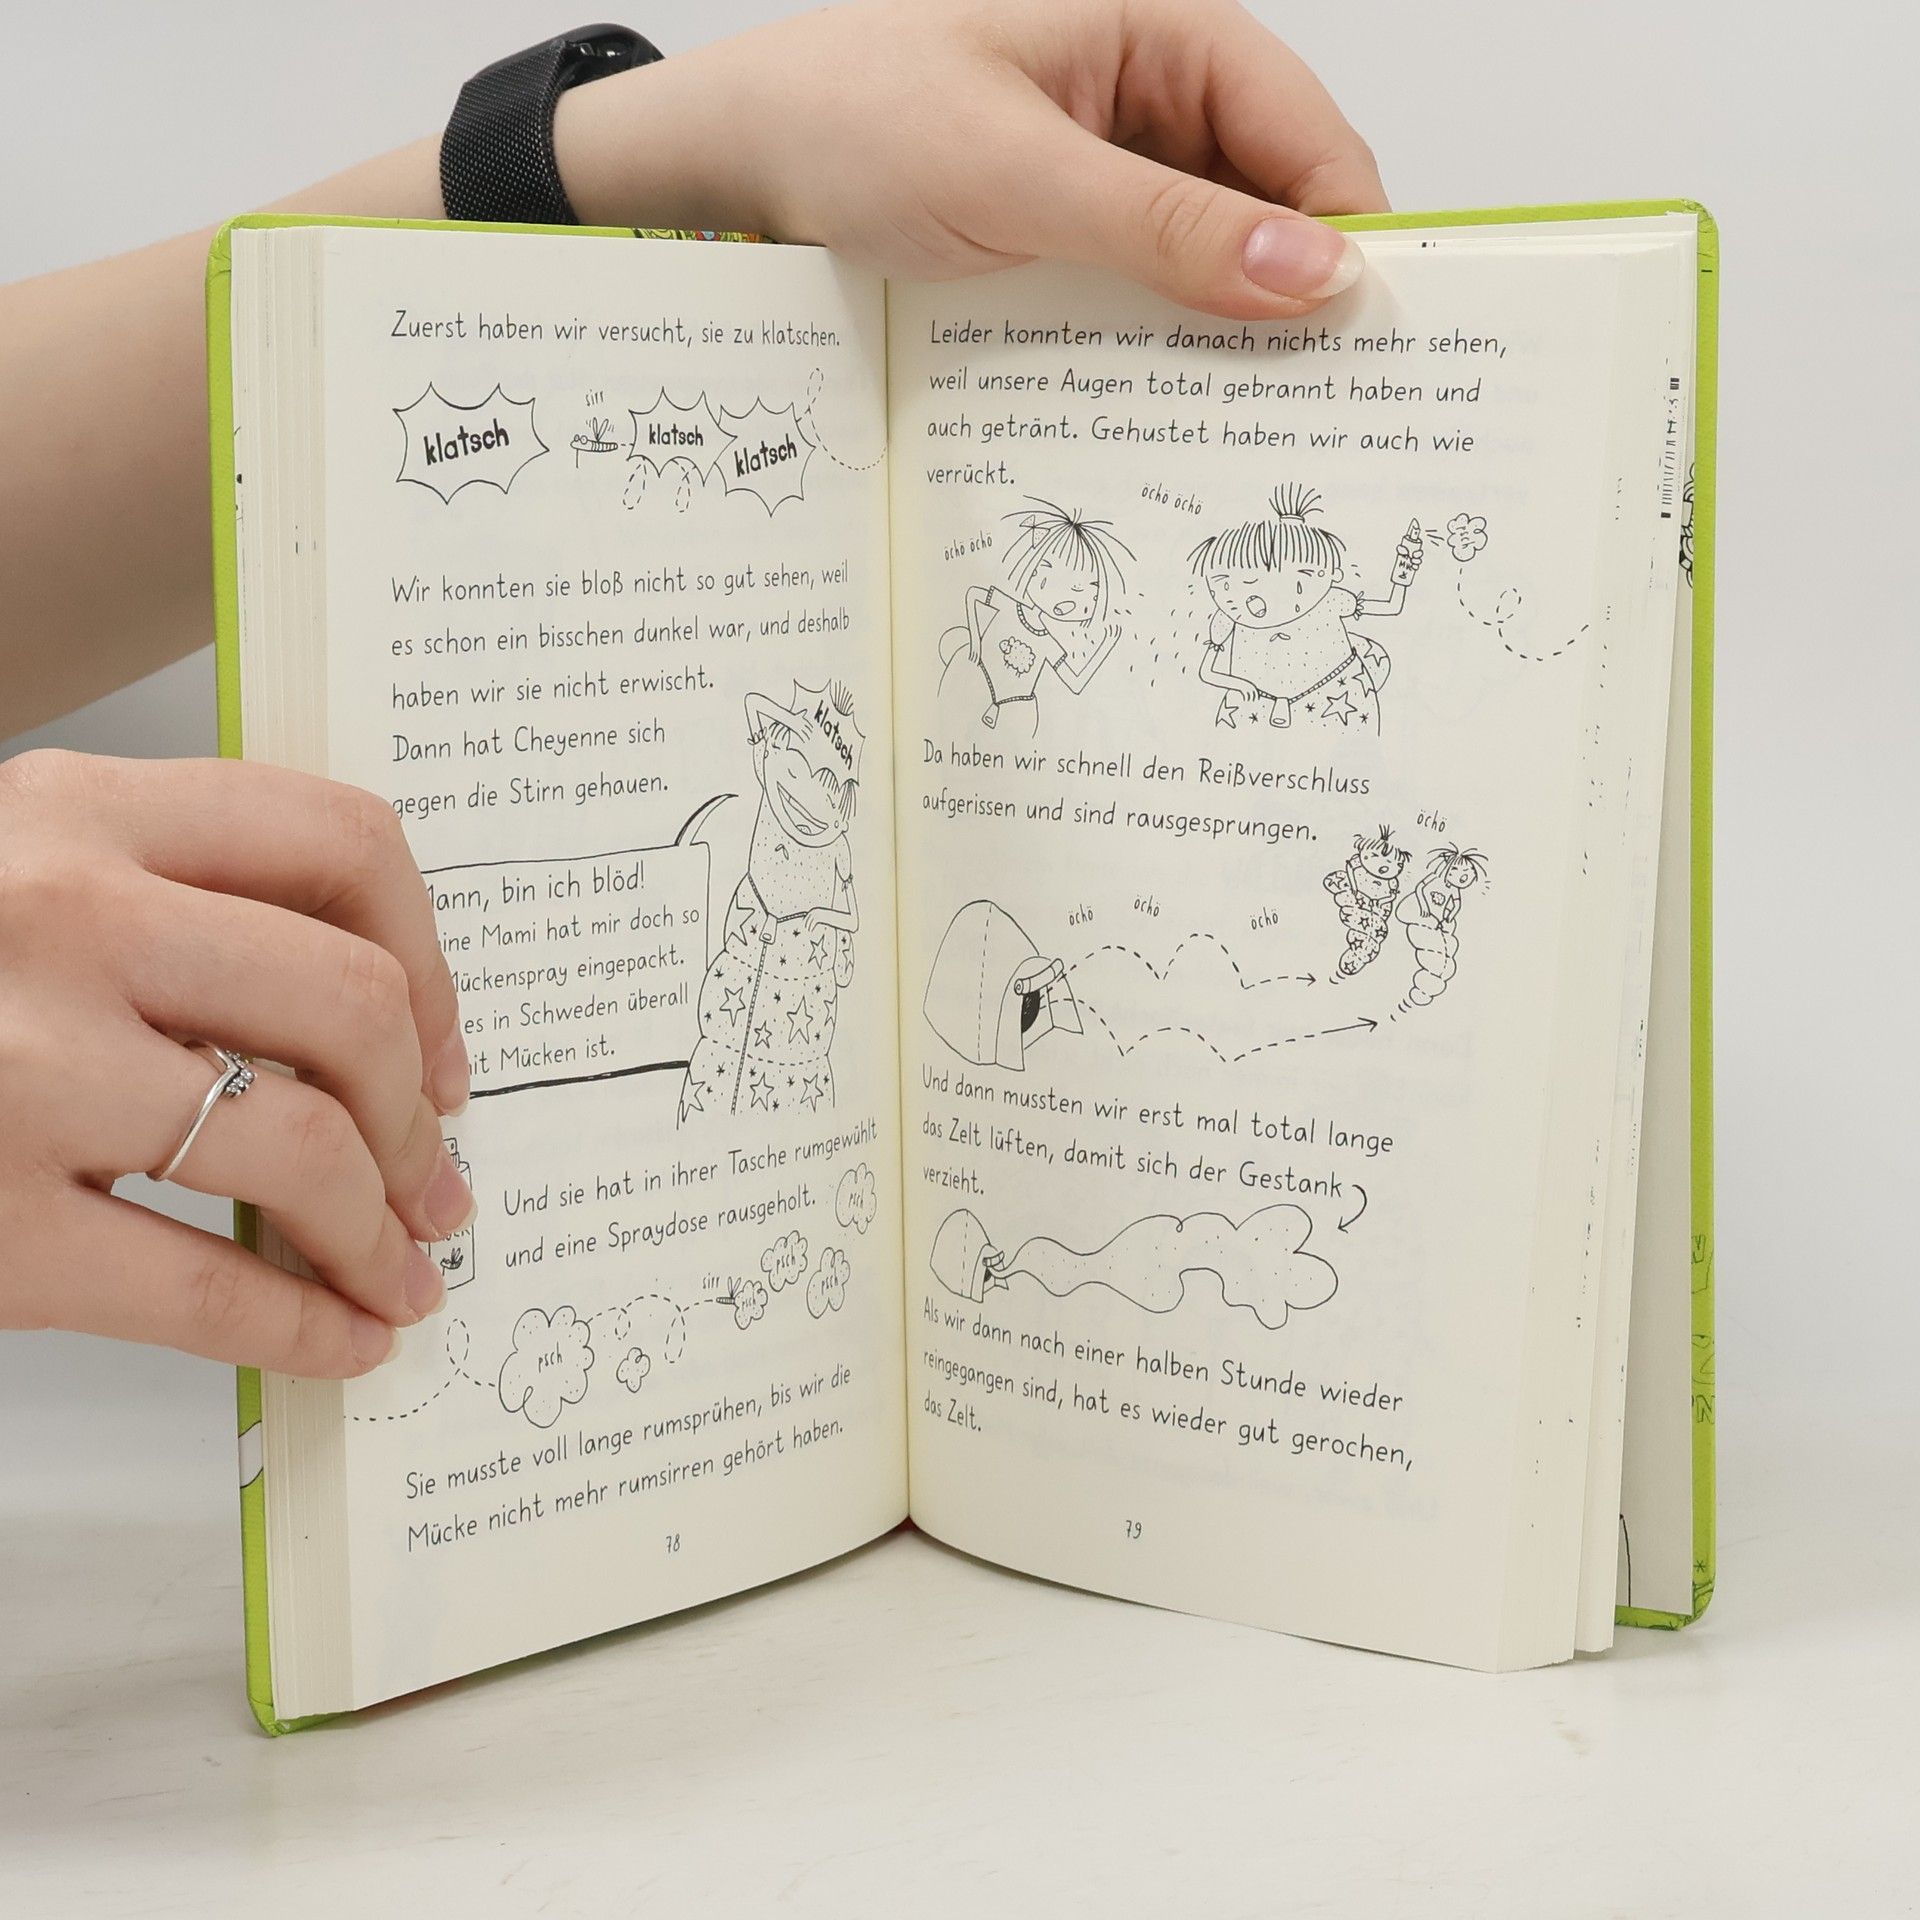 Zuerst haben wir versucht, sie zu klatschen.
klatsch
sirr
klatsch
klatsch
Wir konnten sie bloß nicht so gut sehen, weil
es schon ein bisschen dunkel war, und deshalb
haben wir sie nicht erwischt.
Dann hat Cheyenne sich
gegen die Stirn gehauen.
klatsch
bin ich blöd!
Mami hat mir doch so
eingepackt.
es in Schweden überall
Mücken ist.
Und sie hat in ihrer Tasche rumgewühlt
und eine Spraydose rausgeholt.
psch
sirr
psch
psch
psch
psch
Sie musste voll lange rumsprühen, bis wir die
Mücke nicht mehr rumsirren gehört haben.
78
Leider konnten wir danach nichts mehr sehen,
weil unsere Augen total gebrannt haben und
auch getränt. Gehustet haben wir auch wie
verrückt.
öchö öchö
öchö öchö
Da haben wir schnell den Reißverschluss
aufgerissen und sind rausgesprungen.
öchö
öchö
öchö
öchö
Und dann mussten wir erst mal total lange
das Zelt lüften, damit sich der Gestank
verzieht.
Als wir dann nach einer halben Stunde wieder
reingegangen sind, hat es wieder gut gerochen,
das Zelt.
79